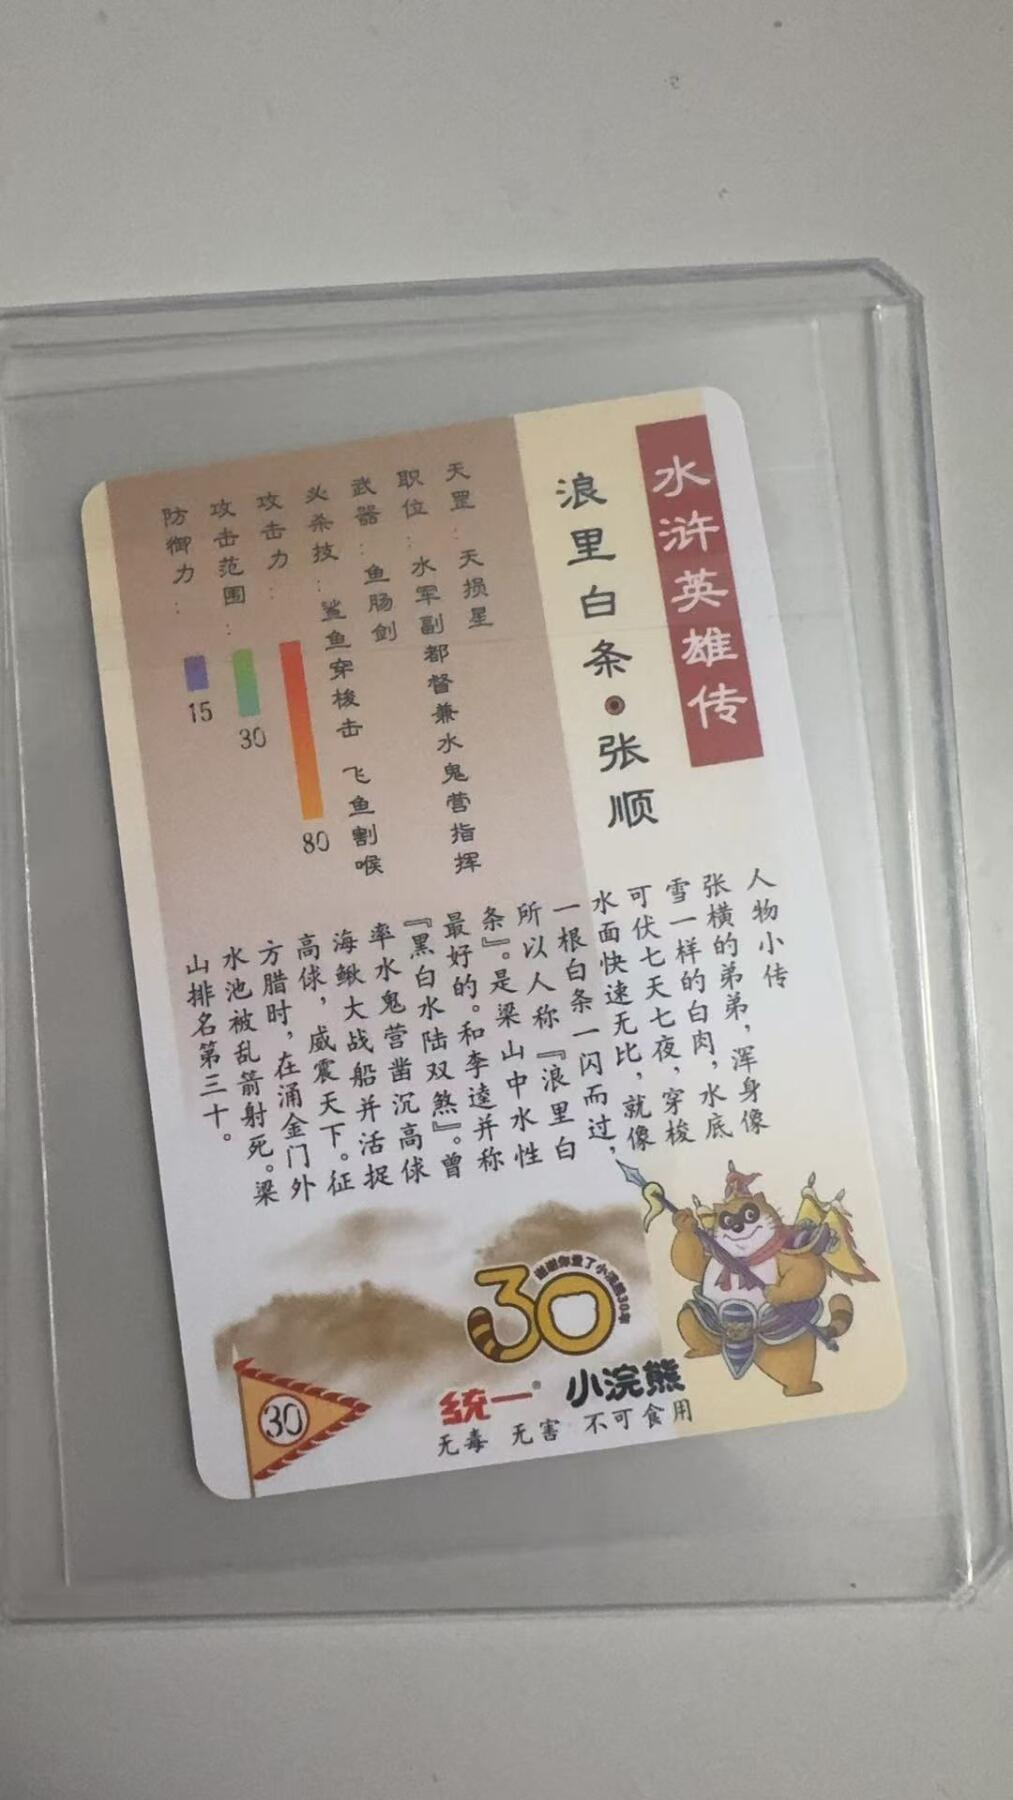 水浒英雄传
浪里白条·张顺
天罡：天损星
职位：水军副都督兼水鬼营指挥
武器：鱼肠剑
必杀技：鲨鱼穿梭击 飞鱼割喉
攻击力： 80
攻击范围： 30
防御力： 15
人物小传
张横的弟弟，浑身像
雪一样的白肉，水底
可伏七天七夜，穿梭
水面快速无比，就像
一根白条一闪而过，
所以人称『浪里白
条』。是梁山中水性
最好的。和李逵并称
『黑白水陆双煞』。曾
率水鬼营凿沉高俅
海鳅大战船并活捉
高俅，威震天下。征
方腊时，在涌金门外
水池被乱箭射死。梁
山排名第三十。
谢谢你爱了小浣熊30年
30
统一® 小浣熊
无毒 无害 不可食用
30